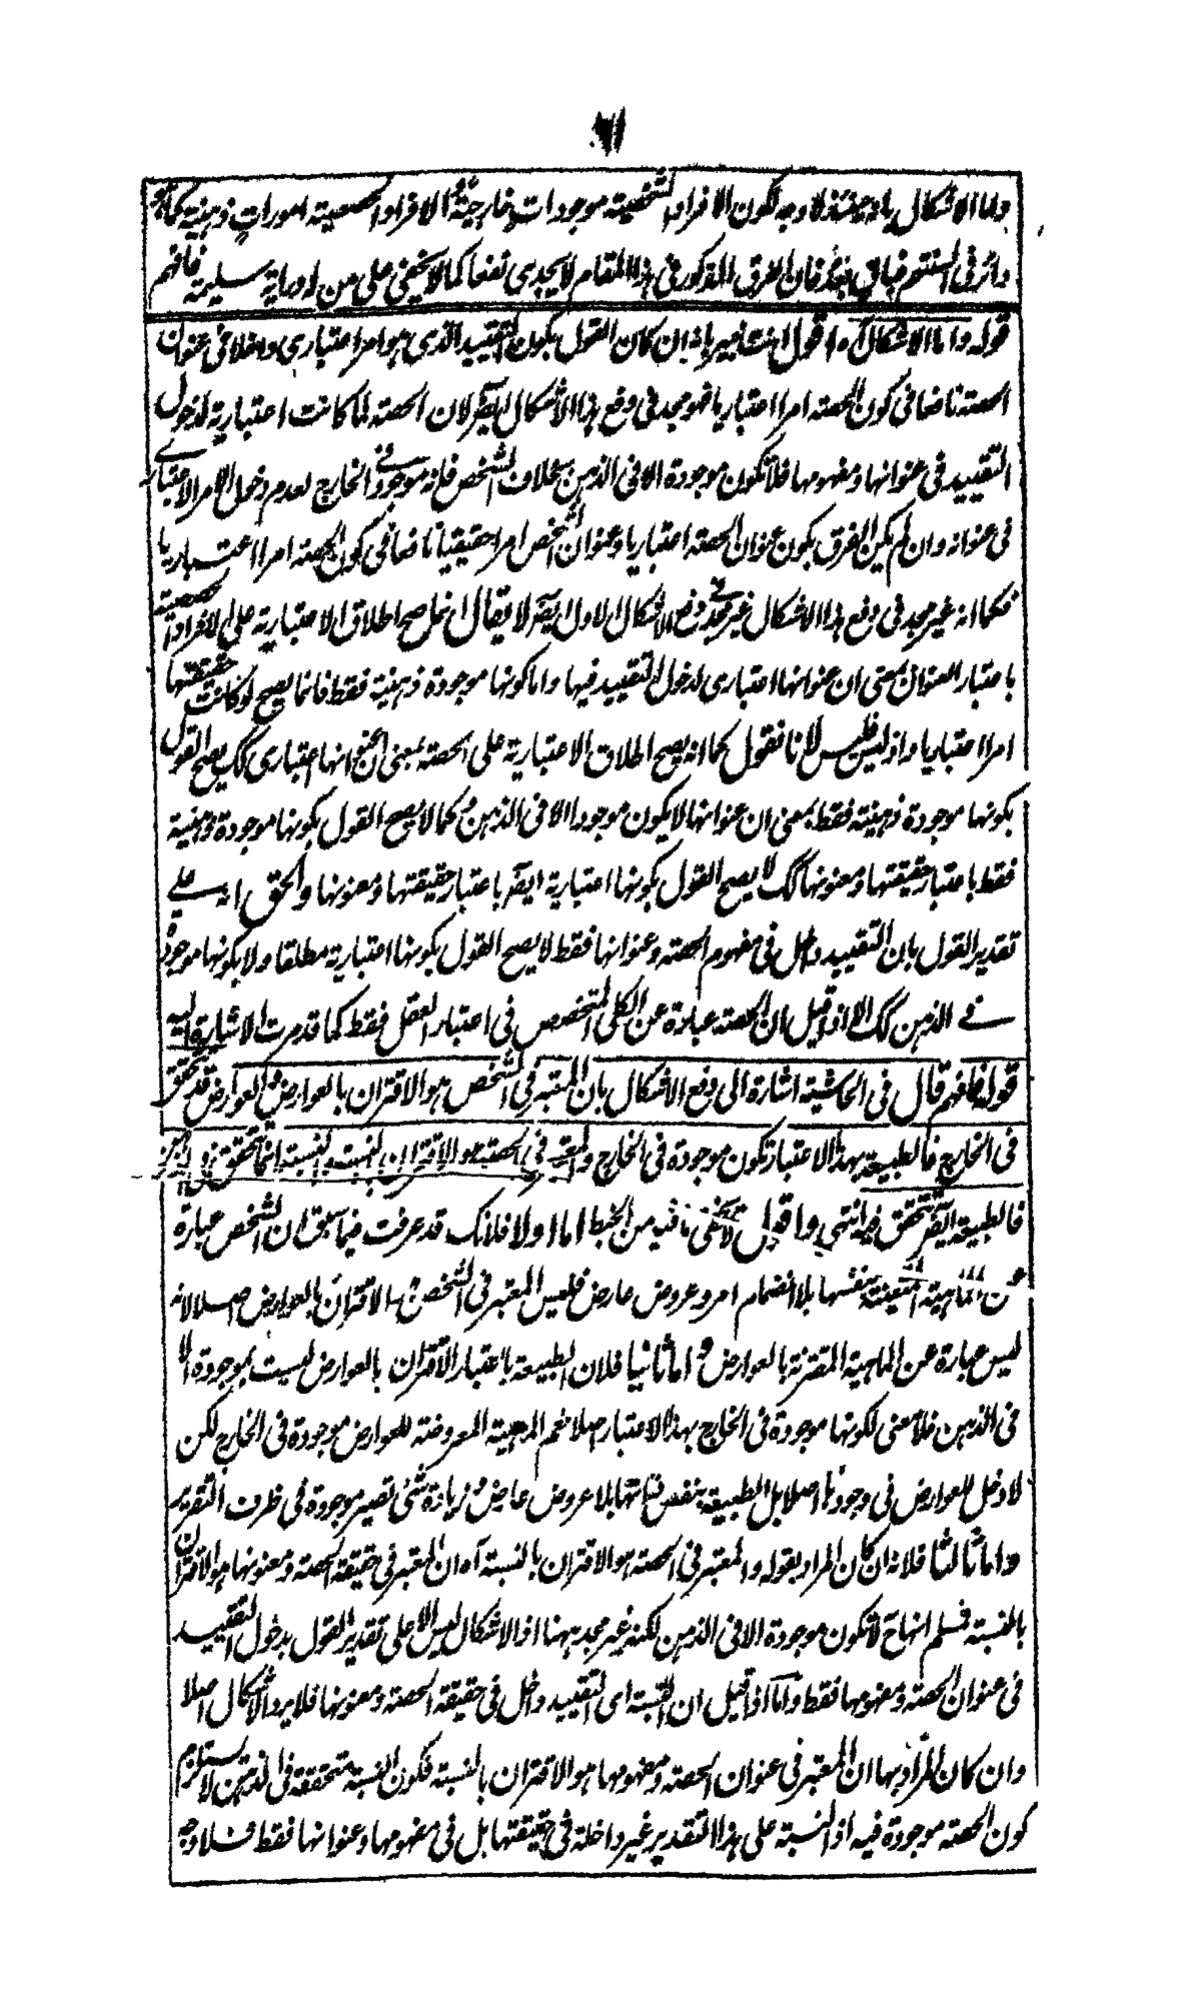 واما الاشكال بانه حينئذ لا وجه لكون الافراد الشخصية موجودات خارجية والافراد الحصصية امورات ذهنية كما هو
دائر في السنتهم فباق بعد فان الفرق المذكور في هذا المقام لا يجدي نفعا كما لا يخفى على من له دراية سليمة فافهم
قوله واما الاشكال آه اقول انت خبير بانه ان كان القول بكون التقييد الذي هو امر اعتباري داخلا في عنوان
الحصة نافعا في كون الحصة امرا اعتباريا فهو مجد في دفع هذا الاشكال ايضا لان الحصة لما كانت اعتبارية لدخول
التقييد في عنوانها ومفهومها فلا تكون موجودة الا في الذهن بخلاف الشخص فانه موجود في الخارج لعدم دخول الامر الاعتباري
في عنوانه وان لم يكن الفرق بكون عنوان الحصة اعتباريا وعنوان الشخص امرا حقيقيا نافعا في كون الحصة امرا اعتباريا
فكما انه غير مجد في دفع هذا الاشكال غير مجد في دفع الاشكال الاول ايضا لا يقال انما صح اطلاق الاعتبارية على الافراد الحصصية
باعتبار العنوان بمعنى ان عنوانها اعتباري لدخول التقييد فيها واما كونها موجودة ذهنية فقط فانما يصح لو كانت حقيقتها
امرا اعتباريا واذ ليس فليس لانا نقول كما انه يصح اطلاق الاعتبارية على الحصة بمعنى ان عنوانها اعتباري كك يصح القول
بكونها موجودة ذهنية فقط بمعنى ان عنوانها لا يكون موجودا الا في الذهن وكما لا يصح القول بكونها موجودة ذهنية
فقط باعتبار حقيقتها ومعنونها كك لا يصح القول بكونها اعتبارية ايضا باعتبار حقيقتها ومعنونها والحق انه على
تقدير القول بان التقييد داخل في مفهوم الحصة وعنوانها فقط لا يصح القول بكونها اعتبارية مطلقا ولا بكونها موجودة
في الذهن كك الا اذا قيل ان الحصة عبارة عن الكلي المتخصص في اعتبار العقل فقط كما قد مرت الاشارة اليه
قوله فافهم قال في الحاشية اشارة الى دفع الاشكال بان المعتبر في الشخص هو الاقتران بالعوارض والعوارض قد تتحقق
في الخارج فالطبيعة بهذا الاعتبار تكون موجودة في الخارج والمعتبر في الحصة هو الاقتران بالنسبة والنسبة انما تتحقق في الذهن
فالطبيعة ايضا تتحقق فيه انتهى واقول لا يخفى ما فيه من الخبط اما اولا فلانك قد عرفت فيما سبق ان الشخص عبارة
عن الماهية المتعينة بنفسها بلا انضمام امر وعروض عارض فليس المعتبر في الشخص الاقتران بالعوارض اصلا لانه
ليس عبارة عن الماهية المقترنة بالعوارض واما ثانيا فلان الطبيعة باعتبار الاقتران بالعوارض ليست بموجودة الا
في الذهن فلا معنى لكونها موجودة في الخارج بهذا الاعتبار اصلا نعم الماهية المعروضة للعوارض موجودة في الخارج لكن
لا دخل للعوارض في وجودها اصلا بل الطبيعة بنفس ذاتها بلا عروض عارض وزيادة شئ تصير موجودة في ظرف التقرير
واما ثالثا فلانه ان كان المراد بقوله والمعتبر في الحصة هو الاقتران بالنسبة آه ان المعتبر في حقيقة الحصة ومعنونها هو الاقتران
بالنسبة فسلم انها ح لا تكون موجودة الا في الذهن لكنه غير مجد ههنا اذ الاشكال ليس الا على تقدير القول بدخول التقييد
في عنوان الحصة ومفهومها فقط واما اذا قيل ان النسبة اى التقييد داخل في حقيقة الحصة ومعنونها فلا يرد الاشكال اصلا
وان كان المراد بها ان المعتبر في عنوان الحصة ومفهومها هو الاقتران بالنسبة فكون النسبة متحققة في الذهن لا يستلزم
كون الحصة موجودة فيه اذ النسبة على هذا التقدير غير داخلة في حقيقتها بل في مفهومها وعنوانها فقط فلا وجه